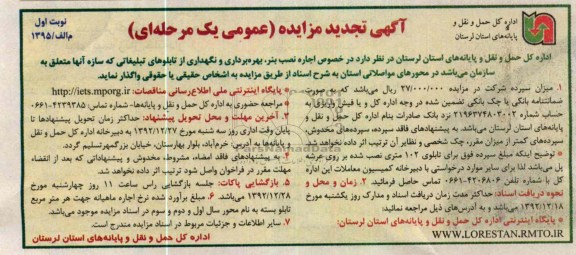 نوبت اول
م/الف/۱۳۹۵
آگهی تجدید مزایده (عمومی یک مرحله‌ای)
اداره کل حمل و نقل و
پایانه‌های استان لرستان
اداره کل حمل و نقل و پایانه‌های استان لرستان در نظر دارد در خصوص اجاره نصب بنر، بهره‌برداری و نگهداری از تابلوهای تبلیغاتی که سازه آنها متعلق به
سازمان می‌باشد در محورهای مواصلاتی استان به شرح اسناد از طریق مزایده به اشخاص حقیقی یا حقوقی واگذار نماید.
۱. میزان سپرده شرکت در مزایده ۲۷/۰۰۰/۰۰۰ ریال می‌باشد که به صورت
ضمانتنامه بانکی یا چک بانکی تضمین شده در وجه اداره کل و یا فیش واریزی به
حساب شماره ۲۱۹۶۳۷۴۸۰۳۰۰۲ نزد بانک صادرات بنام اداره کل حمل و نقل و
پایانه‌های استان لرستان می‌باشد. به پیشنهادهای فاقد سپرده، سپرده‌های مخدوش،
سپرده‌های کمتر از میزان مقرر، چک شخصی و نظایر آن ترتیب اثر داده نخواهد شد.
* توضیح اینکه مبلغ سپرده فوق برای تابلوی ۱۰۲ متری نصب شده بر روی عرشه
پل می‌باشد لذا برای سایر موارد درخواستی با دبیرخانه کمیسیون معاملات این اداره
کل با شماره تلفن ۴۲۰۶۸۰۶-۰۶۶۱ تماس حاصل فرمائید. ۲. زمان و محل و
نحوه دریافت اسناد: حداکثر مدت زمان دریافت اسناد و مدارک روز یکشنبه مورخ
۱۳۹۲/۱۲/۱۸ می‌باشد و به آدرس‌های ذیل مراجعه نمائید:
* پایگاه اینترنتی اداره کل حمل و نقل و پایانه‌های استان لرستان:
WWW.LORESTAN.RMTO.IR
* پایگاه اینترنتی ملی اطلاع‌رسانی مناقصات: http://iets.mporg.ir
* مراجعه حضوری به اداره کل حمل و نقل و پایانه‌ها- شماره تماس: ۴۲۳۹۳۸۵-۰۶۶۱
۳. آخرین مهلت و محل تحویل پیشنهاد: حداکثر زمان تحویل پیشنهادها تا
پایان وقت اداری روز سه شنبه مورخ ۱۳۹۲/۱۲/۲۷ به دبیرخانه اداره کل حمل و نقل
و پایانه‌ها به آدرس: خرم‌آباد، بلوار بهارستان، خیابان بزرگمهر تسلیم گردد.
۴. به پیشنهادهای فاقد امضاء، مشروط، مخدوش و پیشنهاداتی که بعد از انقضاء
مهلت مقرر در فراخوان واصل شود ترتیب اثر داده نخواهد شد.
۵. بازگشایی پاکات: جلسه بازگشایی راس ساعت ۱۱ روز چهارشنبه مورخ
۱۳۹۲/۱۲/۲۸ می‌باشد. ۶. مبلغ برآورد شده نرخ اجاره ماهیانه جهت هر متر مربع
تابلو بسته به نام محور سال اول و دوم و سوم در اسناد مزایده موجود می‌باشد.
۷. سایر اطلاعات و جزئیات مربوط در اسناد مزایده مندرج است.
اداره کل حمل و نقل و پایانه‌های استان لرستان